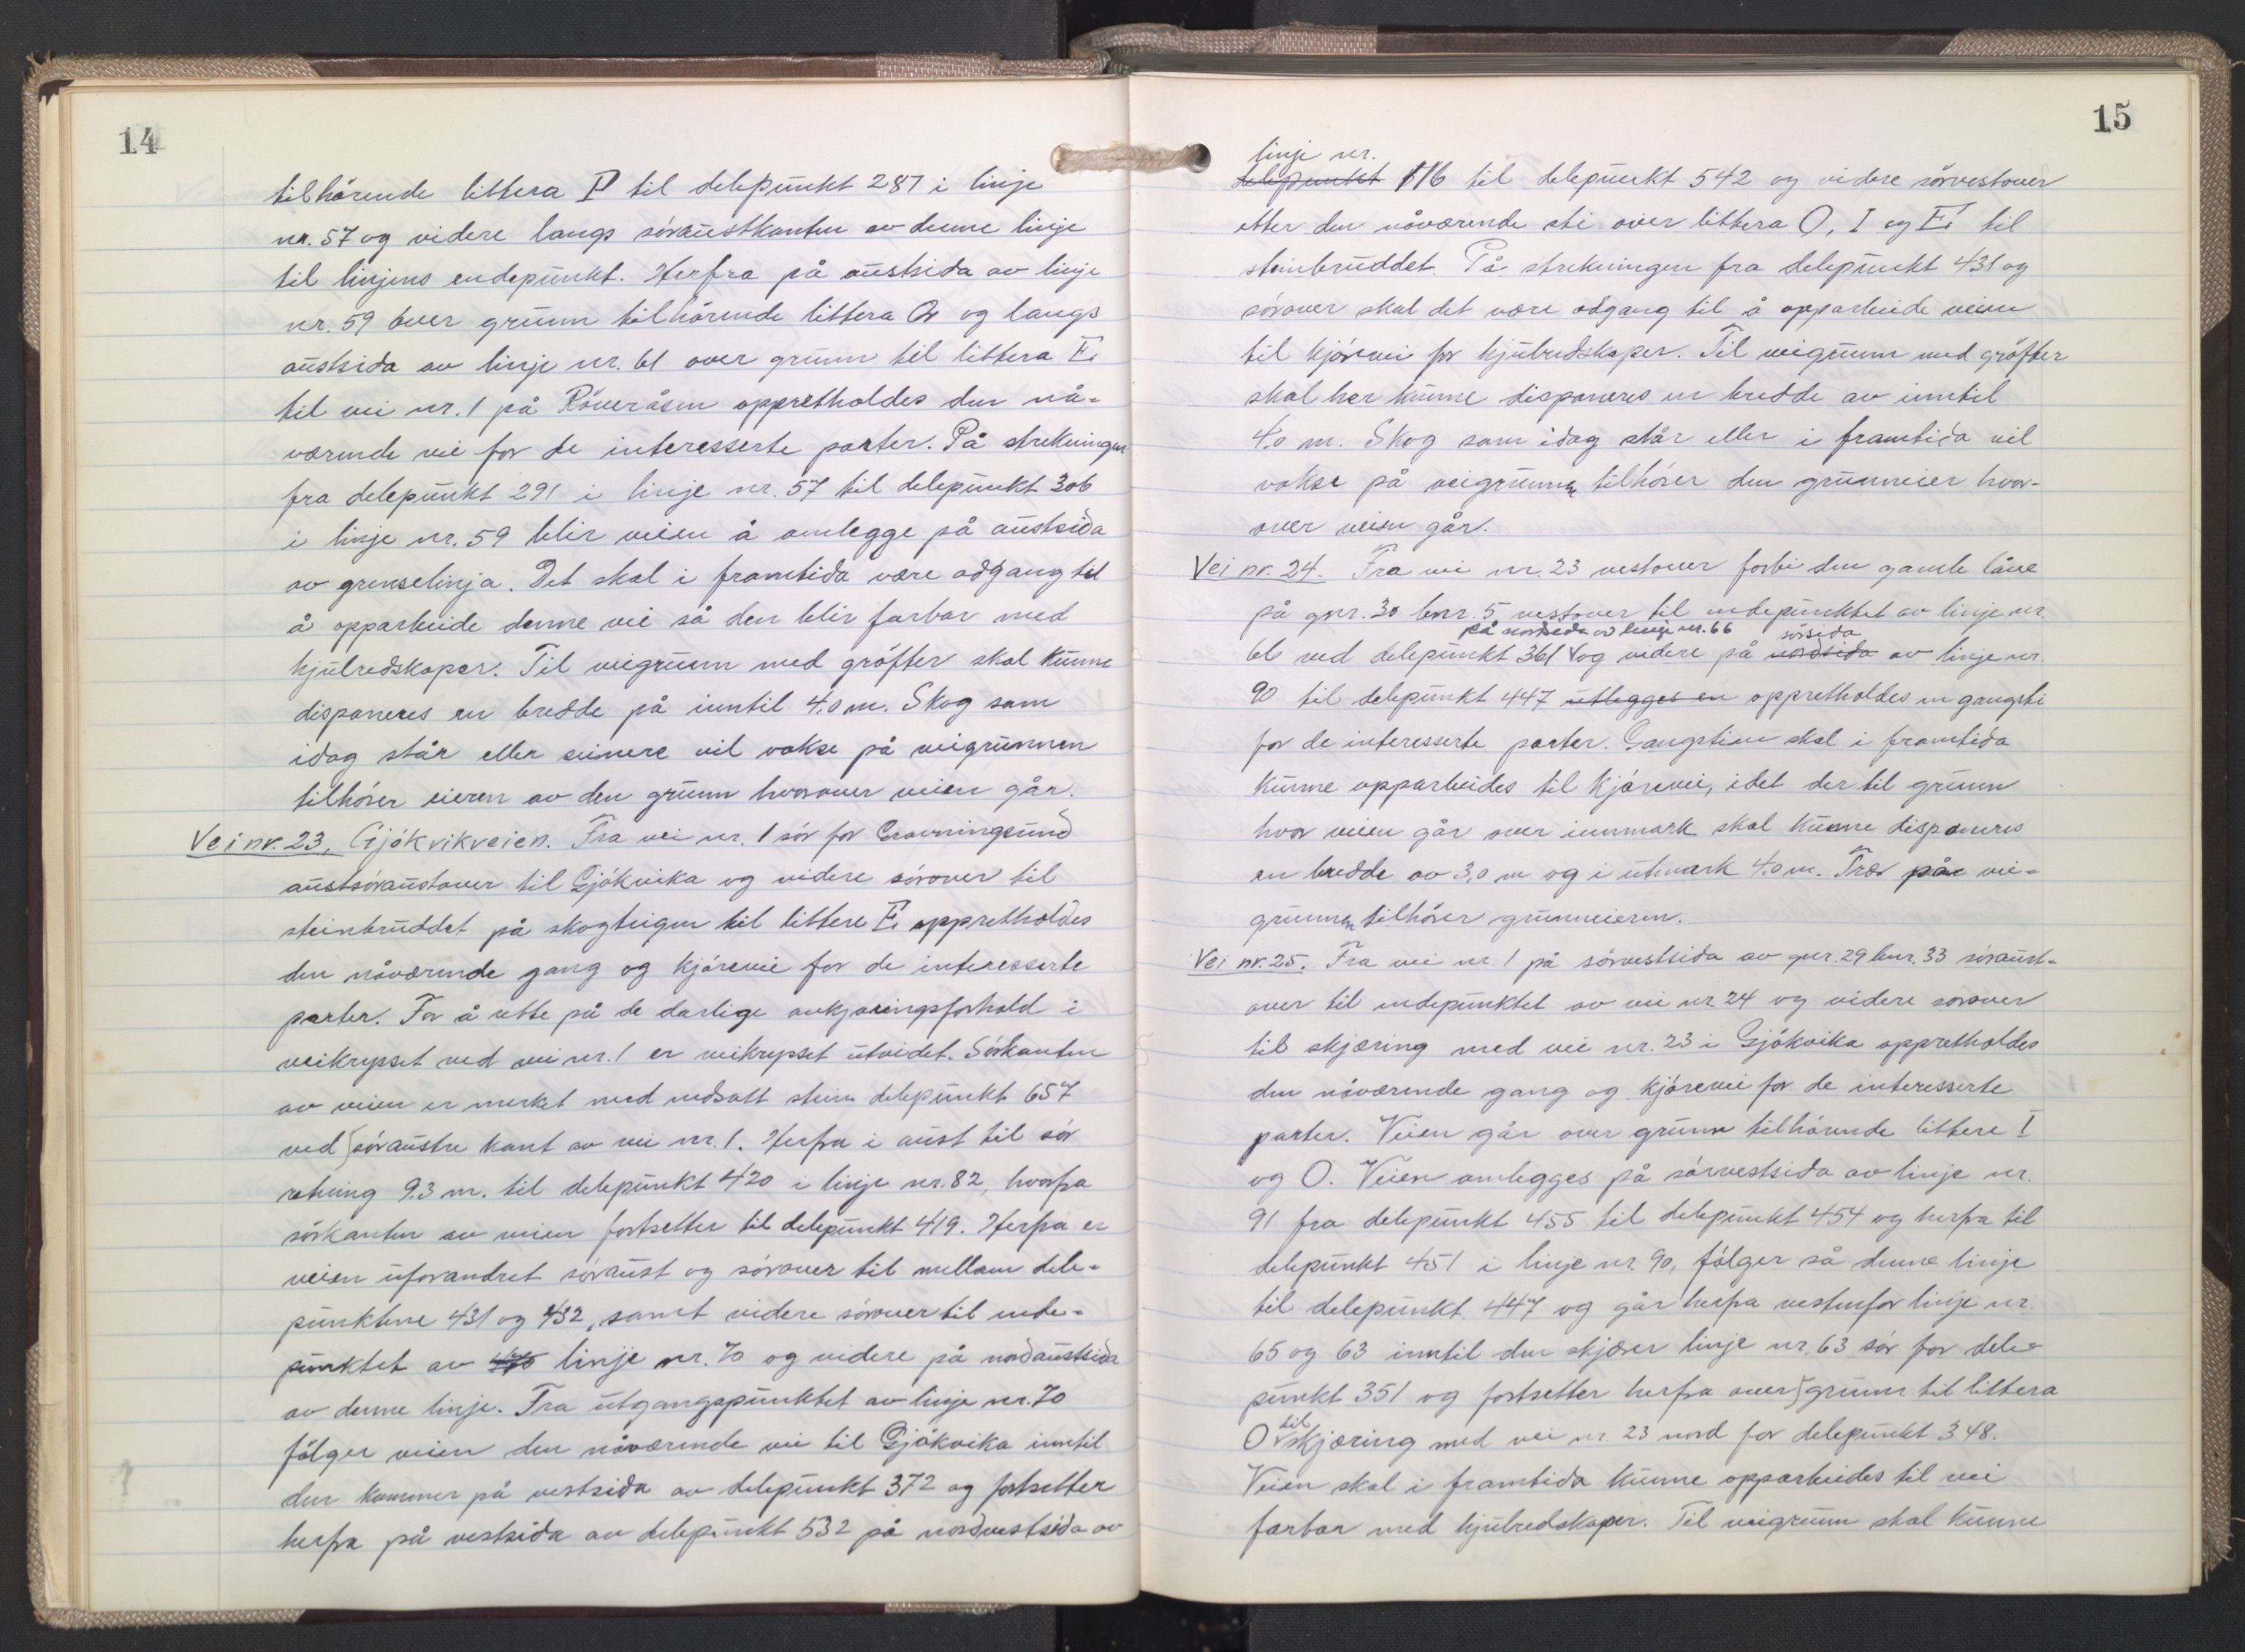 14
tilhörende littera P til delepunkt 287 i linje
nr. 57 og videre langs söraustkanten av denne linje
til linjens endepunkt. Herfra på austsida av linje
nr. 59 över grunn tilhörende littera Q og langs
austsida av linje nr. 61 over grunn til littera E,
til vei nr. 1 på Röveråsen opprettholdes den nå-
værende vei for de interesserte parter. På strekningen
fra delepunkt 291 i linje nr. 57 til delepunkt 306
i linje nr. 59 blir veien å omlegge på austsida
av grenselinja. Det skal i framtida være adgang til
å opparbeide denne vei så den blir farbar med
hjulredskaper. Til veigrunn med gröfter skal kunne
disponeres en bredde på inntil 4,0 m. Skog som
idag står eller seinere vil vokse på veigrunnen
tilhörer eieren av den grunn hvorover veien går.
Vei nr. 23. Gjökvikveien. Fra vei nr. 1 sör for Gravningsund
austsöraustover til Gjökvika og videre sörover til
steinbruddet på skogteigen til littere E, opprettholdes
den nåværende gang og kjörevei for de interesserte
parter. For å rette på de darlige avkjøringsforhold i
veikrysset ved vei nr. 1 er veikrysset utvidet. Sörkanten
av veien er merket med nedsatt stein delepunkt 657
ved söraustre kant av vei nr. 1. Herfra i aust til sör
retning 9.3 m. til delepunkt 420 i linje nr. 82, hvorfra
sörkanten av veien fortsetter til delepunkt 419. Herfra er
veien uforandret söraust og sörover til mellam dele-
punktene 431 og 432, samt videre sörover til ende-
punktet av linje nr. 70 og videre på nordaustsida
av denne linje. Fra utgangspunktet av linje nr. 70
fölger veien den nåværende vei til Gjökvika inntil
den kommer på vestsida av delepunkt 372 og fortsetter
herfra på vestsida av delepunkt 532 på nordvestsida av
15
linje nr.
delepunktet 116 til delepunkt 542 og videre sörvestover
etter den nåværende sti över littera O, I og E, til
steinbruddet. På strekningen fra delepunkt 431 og
sörover skal det være adgang til å opparbeide veien
til kjörevei for hjulredskaper. Til veigrunn med gröfter
skal her kunne disponeres en bredde av inntil
4.0 m. Skog som idag står eller i framtida vil
vokse på veigrunnen tilhörer den grunneier hvor-
over veien går.
Vei nr. 24. Fra vei nr. 23 vestover forbi den gamle låve
på gnr. 30 bnr. 5 vestover til endepunktet av linje nr.
på nordsida av linje nr. 66 sörsida
66 ved delepunkt 361 og videre på nordsida av linje nr.
90 til delepunkt 447 utlegges en opprettholdes en gangsti
for de interesserte parter. Gangstien skal i framtida
kunne opparbeides til kjörevei, idet der til grunn
hvor veien går over innmark skal kunne disponeres
en bredde av 3,0 m og i utmark 4.0 m. Trær på vei-
grunnen tilhörer grunneieren.
Vei nr. 25. Fra vei nr. 1 på sörvestsida av gnr. 29 bnr. 33 söraust-
over til endepunktet av vei nr 24 og videre sorover
til skjæring med vei nr. 23 i Gjökvika opprettholdes
den nåværende gang og kjörevei for de interesserte
parter. Veien går over grunn tilhörende littere I
og O. Veien omlegges på sörvestsida av linje nr.
91 fra delepunkt 455 til delepunkt 454 og herfra til
delepunkt 451 i linje nr. 90, fölger så denne linje
til delepunkt 447 og går herfra vestenfor linje nr.
65 og 63 inntil den skjærer linje nr. 63 sör for dele-
punkt 351 og fortsetter herfra over grunn til littera
til
O skjæring med vei nr 23 nord for delepunkt 348.
Veien skal i framtida kunne opparbeides til vei
farbar med hjulredskaper. Til veigrunn skal kunne